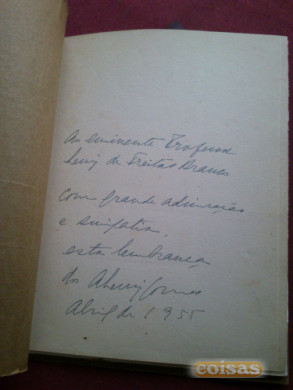 Ao eminente Professor
Luiz de Freitas Branco
com grande admiração
e simpatia,
esta lembrança
do
Abril de 1955
coisas